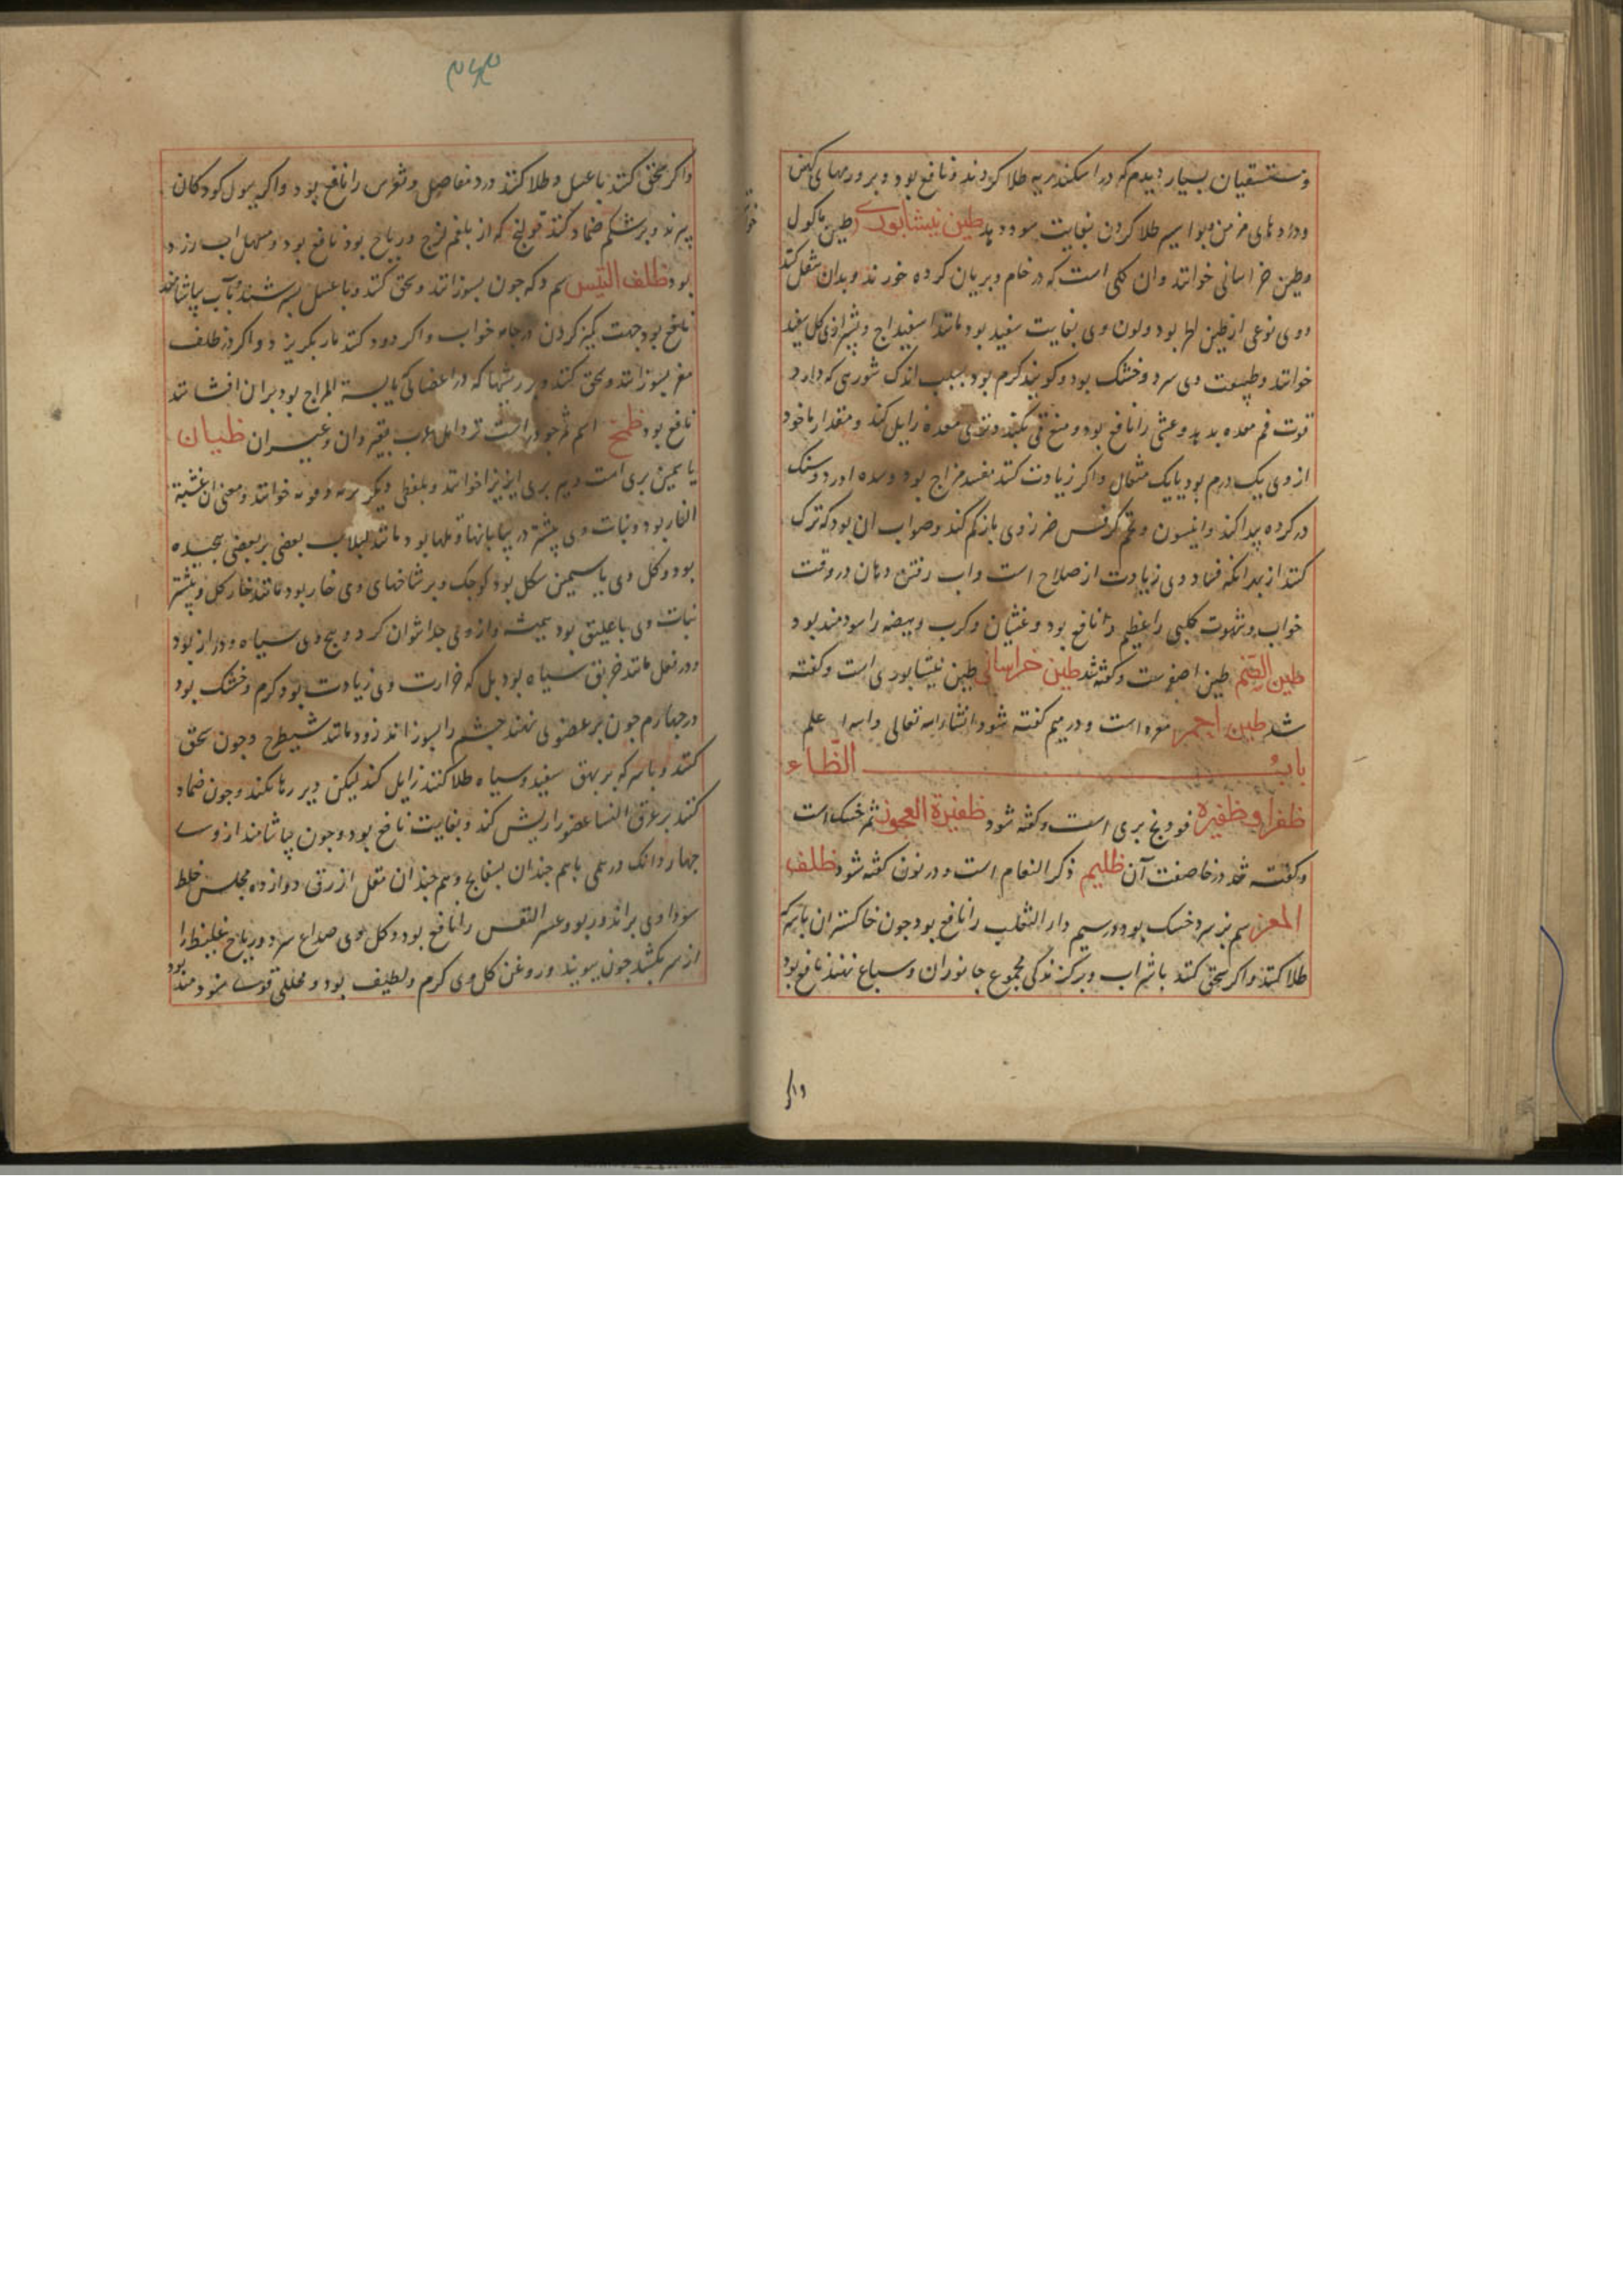 ومستسقیان بسیار دیدم که در اسکندریه طلا کردند و نافع بود و بر ورمهای کهن
ودردهای مزمن وبواسیر طلا کردن بغایت سود دهد طین نیشابوری طین ماکول
وطین خراسانی خوانند وان کلی است که در خام وبریان کرده خورند وبدان تنقل کنند
ووی نوعی از طین بود ولون وی بغایت سفید بود مانند اسفیداج وبشیرازی کل سفید
خوانند وطبیعت وی سرد وخشک بود وکویند کرم بود بسبب اندک شوری که دارد
قوت فم معده بدهد وغشی را نافع بود ومنع قی بکند و معده زایل کند ومقدار ماخوذ
از وی یک درم بود یا یک مثقال واکر زیادت کنند مفسد مزاج بود وسده اورد وسنک
در کرده پیدا کند وانیسون وتخم کرفس ضرر وی بازکم کند وصواب ان بود که ترک
کنند از بهر انکه فساد وی زیادت از صلاح است واب رفتن دهان در وقت
خواب وشهوت کلبی را عظیم نافع بود وغثیان وکرب وهیضه را سودمند بود
طین الصنم طین اصفرست وکفته شد طین خراسانی طین نیشابوری است وکفته
شد طین احمر مغره است ودر میم کفته شود انشاء الله تعالی والله اعلم
باب الظاء
ظفرا وظفیره فودنج بری است وکفته شود ظفیرة العجوز ثمر خسک است
وکفته شد در خا صفت آن ظلیم ذکر النعام است ودر نون کفته شود ظلف
المعز سم بز سرد وخشک بود وداء الثعلب را نافع بود چون خاکستر ان با سرکه
طلا کنند واکر سحق کنند با شراب وبر کزندکی مجموع جانوران وسباع نهند نافع بود
واکر
واکر سحق کنند با عسل وطلا کنند درد مفاصل ونقرس را نافع بود واکر ببول کودکان
بپزند وبر شکم ضماد کنند قولنج که از بلغم لزج وریاح بود نافع بود ومسهل اب زرد
بود ظلف التیس سم وی چون بسوزانند وسحق کنند وبا عسل بسرشند وبآب بیاشامند
نافع بود جهت کمیز کردن در جامه خواب واکر دود کنند مار بکریزد واکر ظلف
معز بسوزانند وسحق کنند وبر ریشها که در اعضای یابسة المزاج بود بران افشانند
نافع بود ظمخ اسم نزد اهل عرب بقیروان وغیر ان ظیان
یاسمین بری است وبه بربری خوانند وبلفظی دیکر خوانند ومعنی ان عشبة
النار بود ونبات وی بیشتر در بیابانها وتلها بود مانند لبلاب بعضی بر بعضی پیچیده
بود وکل وی یاسمین شکل بود کوچک وبر شاخهای وی خار بود مانند خار کل وبیشتر
نبات وی با علیق بود همیشه واز وی جدا نتوان کرد وبیخ وی سیاه ودراز بود
ودر فعل مانند خربق سیاه بود بل که حرارت وی زیادت بود وکرم وخشک بود
در چهارم چون بر عضوی نهند جشم را بسوزاند زود مانند شیطرج وچون سحق
کنند وبا سرکه بر بهق سفید وسیاه طلا کنند زایل کند لیکن دیر رها نکنند وچون ضماد
کنند بر عرق النسا عضو را ریش کند وبغایت نافع بود وچون بیاشامند از وی
چهار دانک درهمی با هم چندان بسفایج وهم چندان مقل ازرق دوازده مجلس خلط
سوداوی براند وربو وعسر النفس را نافع بود وکل وی صداع سرد وریاح غلیظ را
از سر بکشد چون ببویند وروغن کل وی کرم ولطیف بود ومحللی قوی سودمند بود